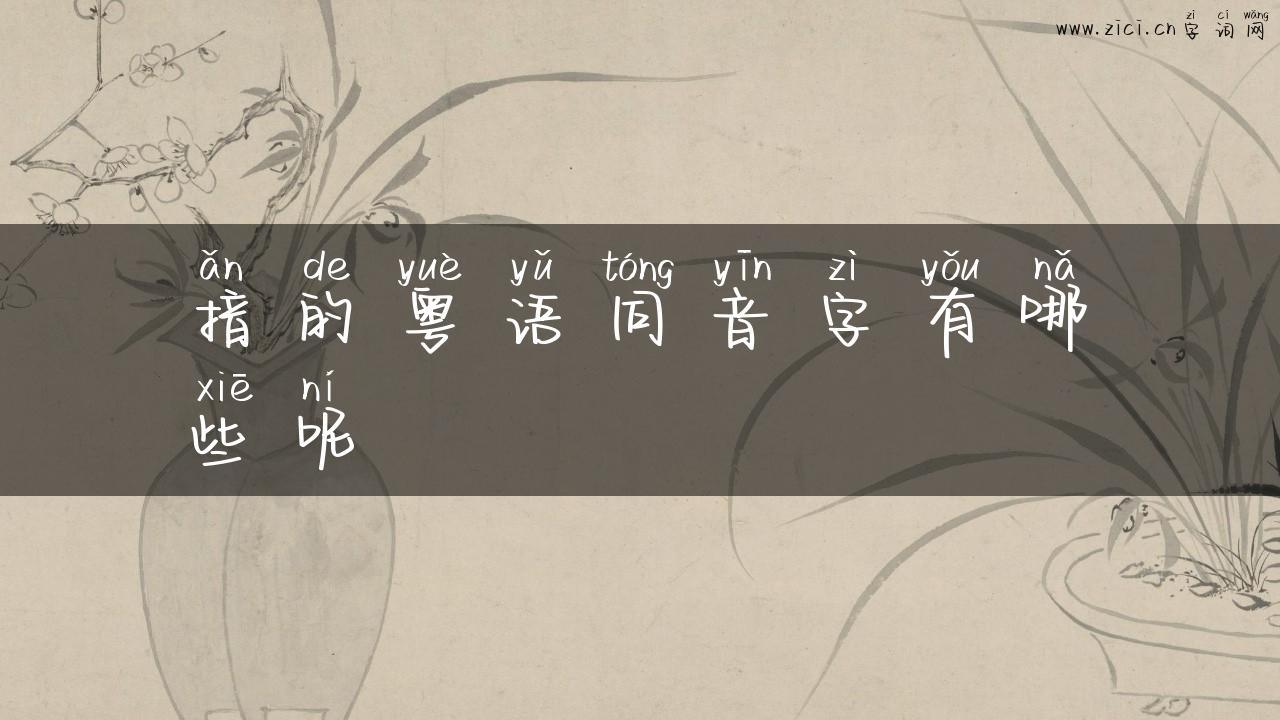 zì cí wǎng
www.zici.cn 字词网
ǎn de yuè yǔ tóng yīn zì yǒu nǎ
揞的粤语同音字有哪
xiē ní
些呢